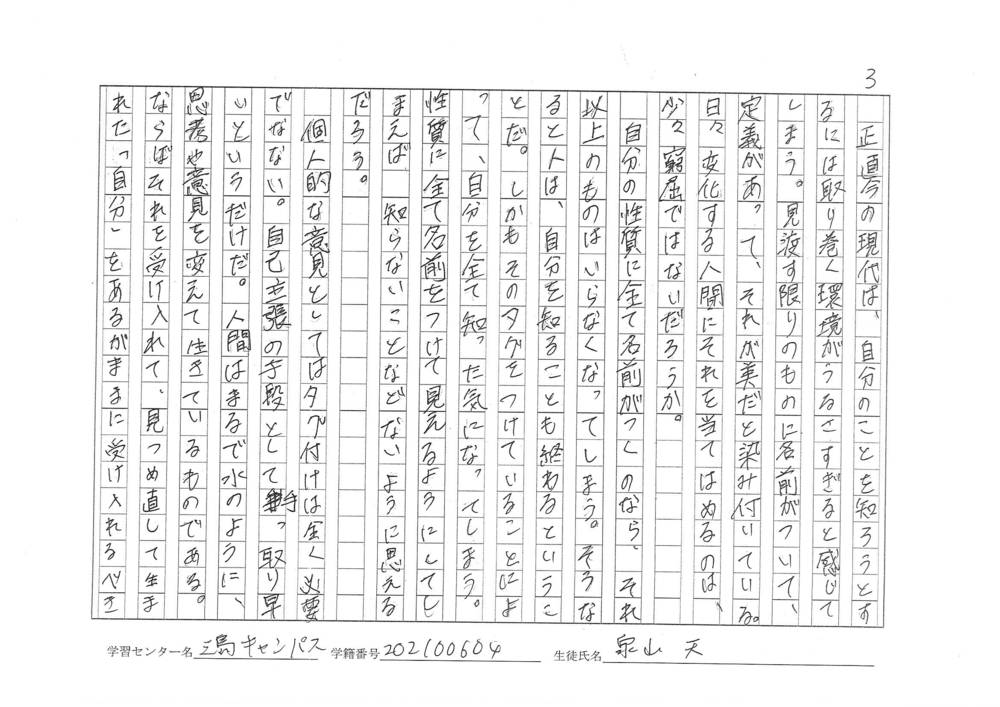 3
正直今の現代は、自分のことを知ろうとす
るには取り巻く環境がうるさすぎると感じて
しまう。見渡す限りのものに名前がついて、
定義があって、それが美だと染み付いている。
日々変化する人間にそれを当てはめるのは、
少々窮屈ではないだろうか。
自分の性質に全て名前がつくのなら、それ
以上のものはいらなくなってしまう。そうな
ると人は、自分を知ることも終わるというこ
とだ。しかもそのタグをつけていることによ
って、自分を全て知った気になってしまう。
性質に全て名前をつけて見えるようにしてし
まえば、知らないことなどないように思える
だろう。
個人的な意見としてはタグ付けは全く必要
でなない。自己主張の手段として手っ取り早
いというだけだ。人間はまるで水のように、
思考や意見を変えて生きているものである。
ならばそれを受け入れて、見つめ直して生ま
れた「自分」をあるがままに受け入れるべき
学習センター名 三島キャンパス 学籍番号 202100604 生徒氏名 泉山 天